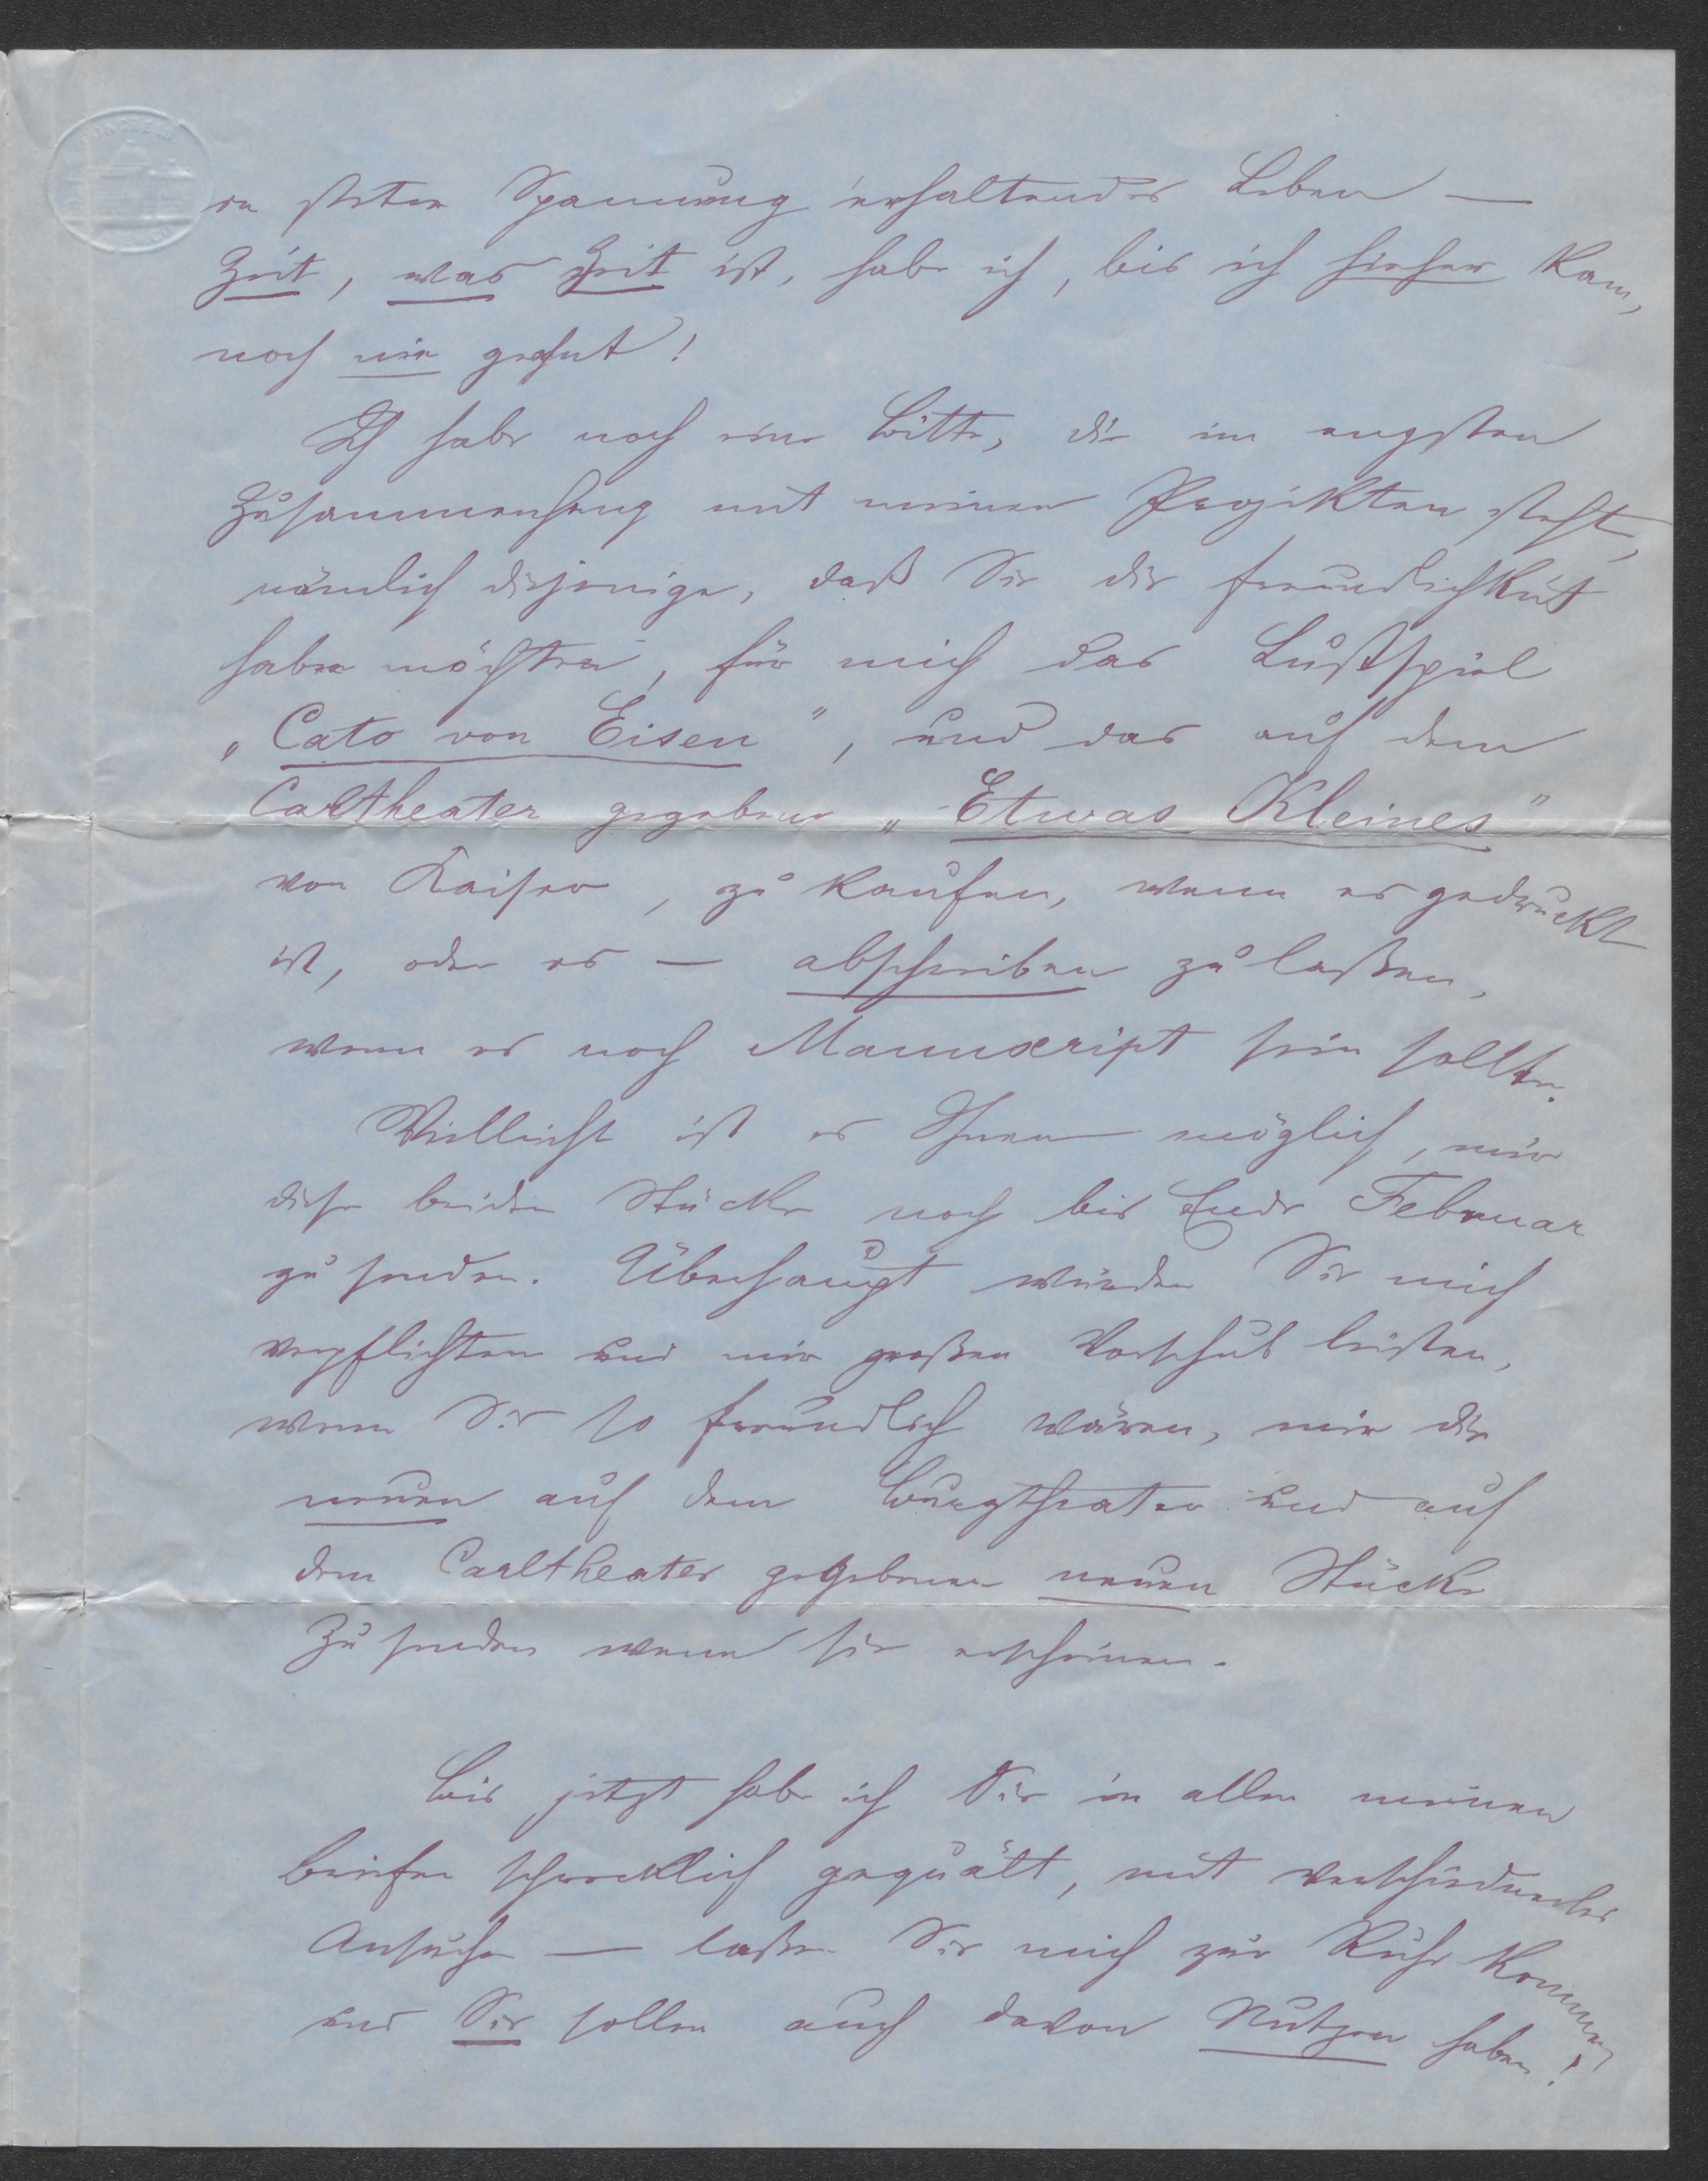 in steter Spannung erhaltendes Leben —
Zeit, was Zeit ist, habe ich, bis ich hieher kam,
noch nie geahnt!
Ich habe noch eine Bitte, die im engsten
Zusammenhang mit meinen Projekten steht,
nämlich diejenige, daß Sie die Freundlichkeit
haben möchten, für mich das Lustspiel
„Cato von Eisen", und das auf dem
Carltheater gegebene „Etwas Kleines"
von Kaiser, zu kaufen, wenn es gedruckt
ist, oder es — abschreiben zu laßen,
wenn es noch Manuscript sein sollte.
Vielleicht ist es Ihnen möglich, mir
diese beiden Stücke noch bis Ende Februar
zu senden. Überhaupt würden Sie mich
verpflichten und mir großen Vorschub leisten,
wenn Sie so freundlich wären, mir die
neuen auf dem Burgtheater und auf
dem Carltheater gegebenen neuen Stücke
zu senden wenn sie erscheinen.
Bis jetzt habe ich Sie in allen meinen
Briefen schrecklich gequält, mit verschiedenerlei
Ansuchen — laßen Sie mich zur Ruhe kommen
und Sie sollen auch davon Nutzen haben!